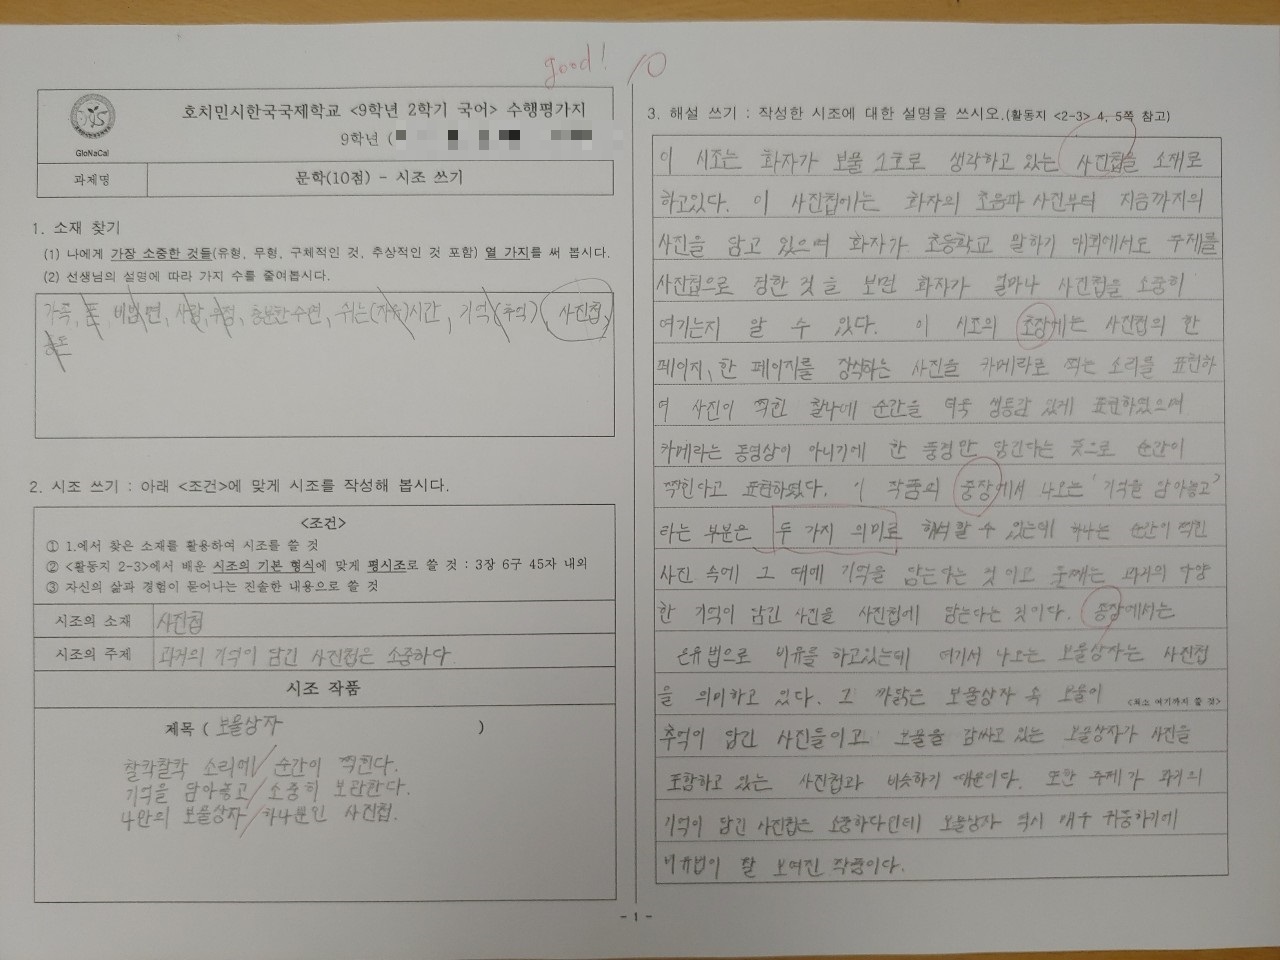 good! 10
GloNaCal
호치민시한국국제학교 <9학년 2학기 국어> 수행평가지
9학년 (
과제명
문학(10점) - 시조 쓰기
1. 소재 찾기
(1) 나에게 가장 소중한 것들(유형, 무형, 구체적인 것, 추상적인 것 포함) 열 가지를 써 봅시다.
(2) 선생님의 설명에 따라 가지 수를 줄여봅시다.
가족, 돈, 비빔면, 사랑, 우정, 충분한 수면, 쉬는(자유)시간, 기억(추억), 사진첩,
2. 시조 쓰기 : 아래 <조건>에 맞게 시조를 작성해 봅시다.
<조건>
① 1.에서 찾은 소재를 활용하여 시조를 쓸 것
② <활동지 2-3>에서 배운 시조의 기본 형식에 맞게 평시조로 쓸 것 : 3장 6구 45자 내외
③ 자신의 삶과 경험이 묻어나는 진솔한 내용으로 쓸 것
시조의 소재
사진첩
시조의 주제
과거의 기억이 담긴 사진첩은 소중하다
시조 작품
제목 ( 보물상자 )
찰칵찰칵 소리에/ 순간이 찍힌다.
기억을 담아놓고/ 소중히 보관한다.
나만의 보물상자/ 하나뿐인 사진첩.
3. 해설 쓰기 : 작성한 시조에 대한 설명을 쓰시오.(활동지 <2-3> 4, 5쪽 참고)
이 시조는 화자가 보물 1호로 생각하고 있는 사진첩을 소재로
하고있다. 이 사진첩에는 화자의 초음파 사진부터 지금까지의
사진을 담고 있으며 화자가 초등학교 말하기 대회에서도 주제를
사진첩으로 정한 것을 보면 화자가 얼마나 사진첩을 소중히
여기는지 알 수 있다. 이 시조의 초장에는 사진첩의 한
페이지, 한 페이지를 장식하는 사진을 카메라로 찍는 소리를 표현하
여 사진이 찍힌 찰나에 순간을 더욱 생동감 있게 표현하였으며
카메라는 동영상이 아니기에 한 풍경만 담긴다는 뜻으로 순간이
찍힌다고 표현하였다. 이 작품의 중장에서 나오는 '기억을 담아놓고'
라는 부분은 두 가지 의미로 해석할 수 있는데 하나는 순간이 찍힌
사진 속에 그 때에 기억을 담는다는 것이고 둘째는 과거의 다양
한 기억이 담긴 사진을 사진첩에 담는다는 것이다. 종장에서는
은유법으로 비유를 하고있는데 여기서 나오는 보물상자는 사진첩
을 의미하고 있다. 그 까닭은 보물상자 속 보물이 <최소 여기까지 쓸 것>
추억이 담긴 사진들이고 보물을 감싸고 있는 보물상자가 사진을
포함하고 있는 사진첩과 비슷하기 때문이다. 또한 주제가 과거의
기억이 담긴 사진첩은 소중하다인데 보물상자 역시 매우 귀중하기에
비유법이 잘 보여진 작품이다.
- 1 -